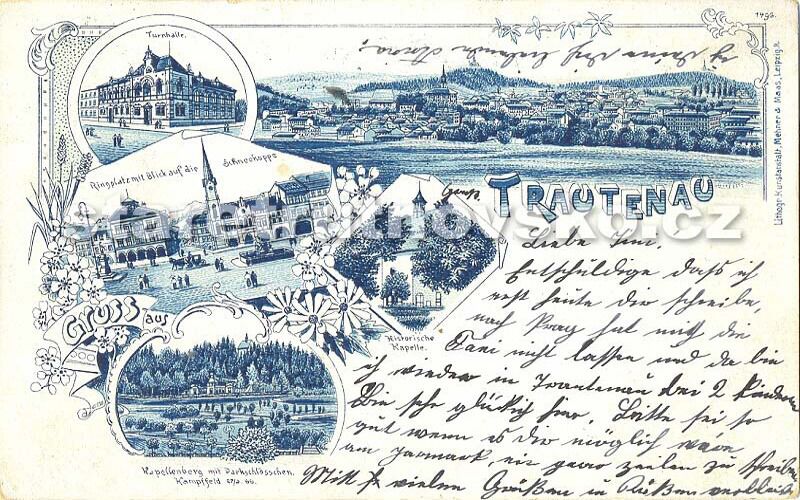 1493.
Turnhalle.
Ringplatz mit Blick auf die Schneekoppe
GRUSS aus
TRAUTENAU
Historische
Kapelle.
Kapellenberg mit Parkschlösschen.
Kampffeld 27/6. 66.
Lithogr. Kunstanstalt, Mehner & Maas, Leipzig R.
staretrutnovsko.cz
Liebe
Entschüldige dass ich
erst heute dir schreibe
nach Prag hat mich die
nicht lassen und da bin
ich wieder in Trautenau bei 2 Kindern
Bin sehr glücklich hier. Bitte sei so
gut wenn es dir möglich wäre
am zeilen zu schreiben
Mitt vielen Grüßen u Küßen verbleibt